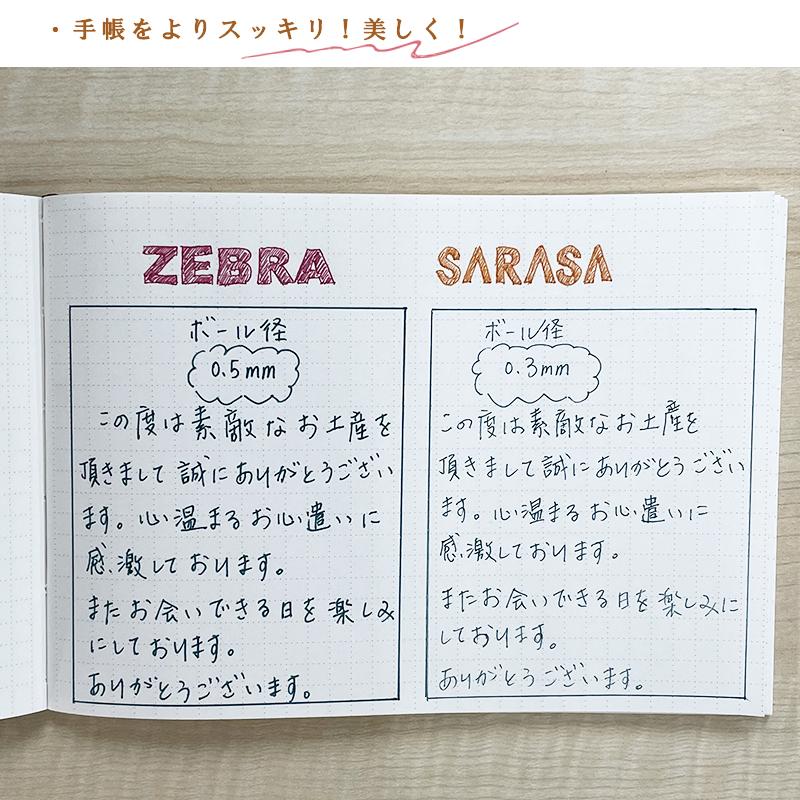 ・手帳をよりスッキリ！美しく！
ZEBRA
ボール径
0.5mm
この度は素敵なお土産を
頂きまして誠にありがとうござい
ます。心温まるお心遣いに
感激しております。
またお会いできる日を楽しみ
にしております。
ありがとうございます。
SARASA
ボール径
0.3mm
この度は素敵なお土産を
頂きまして誠にありがとうござい
ます。心温まるお心遣いに
感激しております。
またお会いできる日を楽しみに
しております。
ありがとうございます。